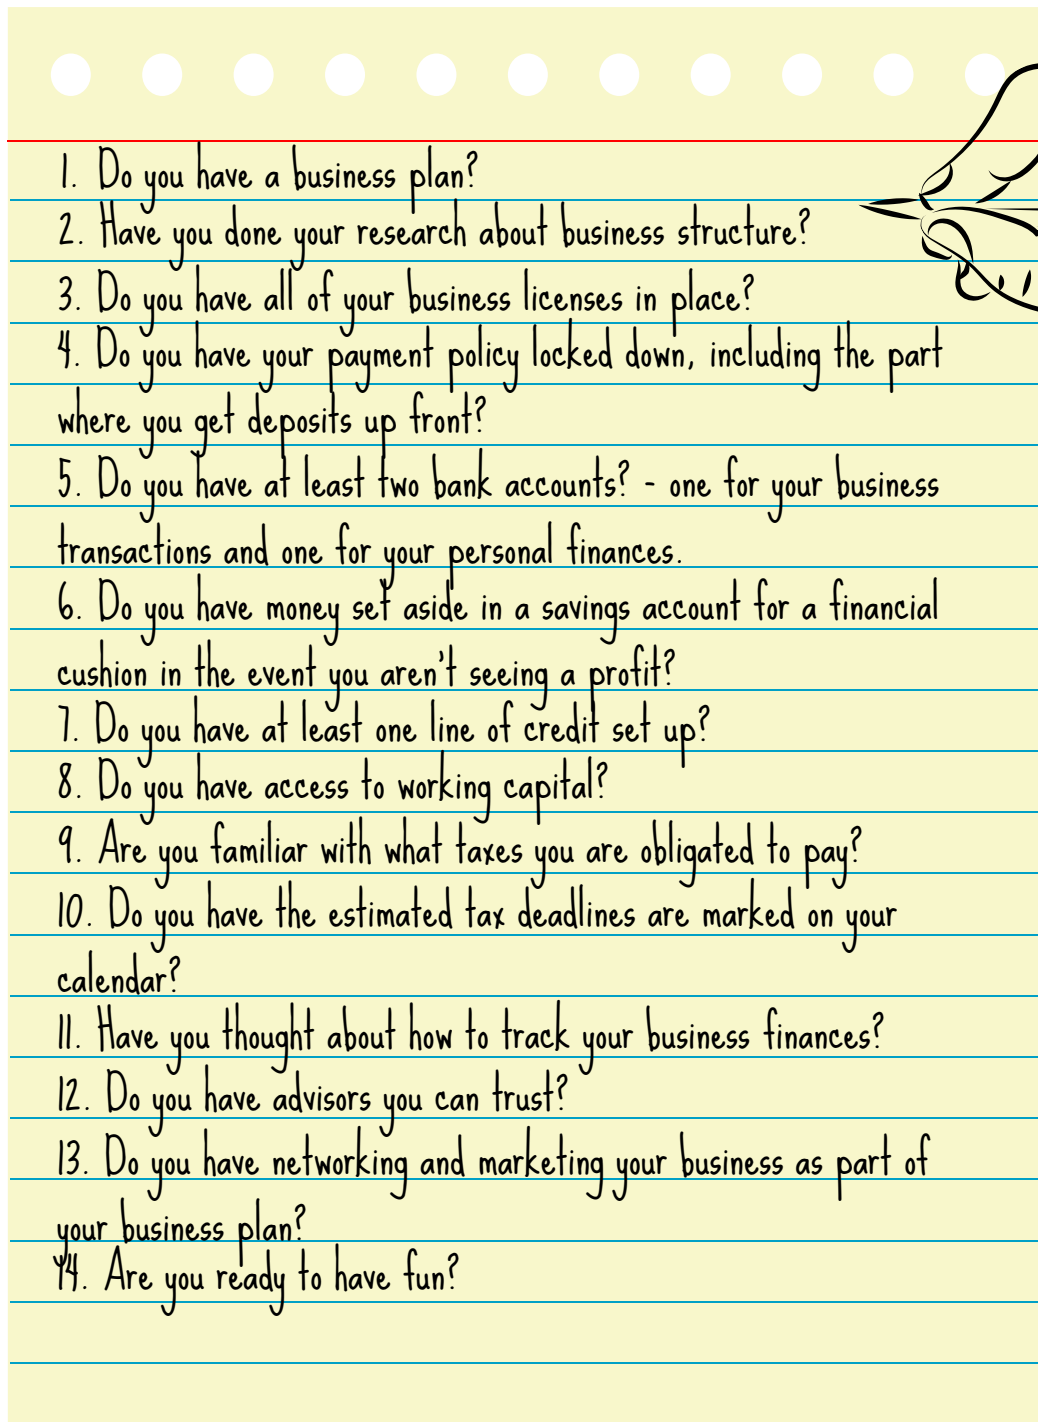 1. Do you have a business plan?
2. Have you done your research about business structure?
3. Do you have all of your business licenses in place?
4. Do you have your payment policy locked down, including the part
where you get deposits up front?
5. Do you have at least two bank accounts? - one for your business
transactions and one for your personal finances.
6. Do you have money set aside in a savings account for a financial
cushion in the event you aren't seeing a profit?
7. Do you have at least one line of credit set up?
8. Do you have access to working capital?
9. Are you familiar with what taxes you are obligated to pay?
10. Do you have the estimated tax deadlines are marked on your
calendar?
11. Have you thought about how to track your business finances?
12. Do you have advisors you can trust?
13. Do you have networking and marketing your business as part of
your business plan?
14. Are you ready to have fun?